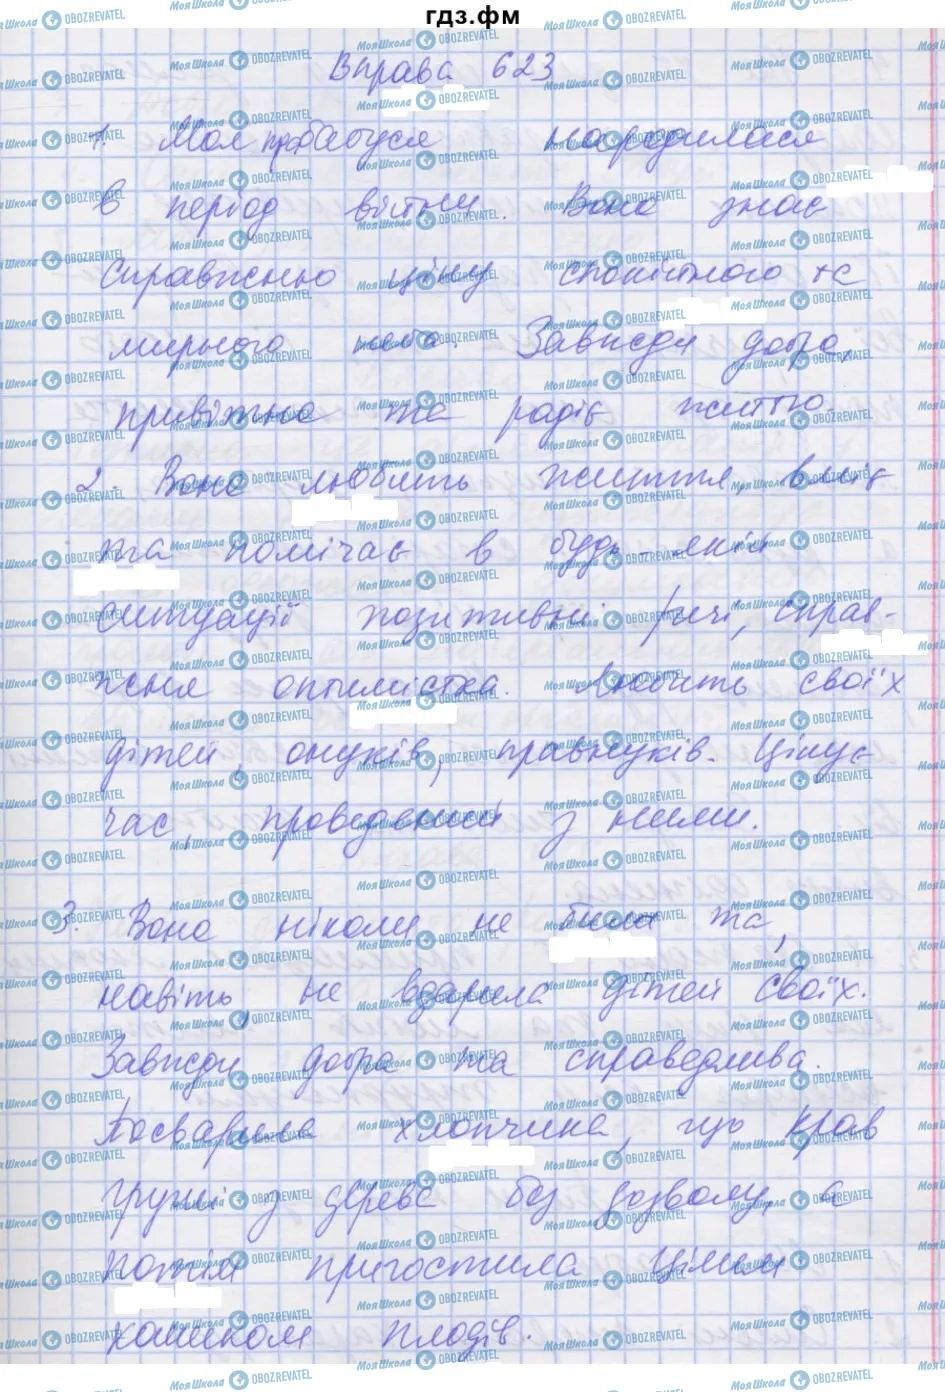 гдз.фм
Вправа 623
1. Моя прабабуся народилася
в період війни. Вона знає
справжню ціну спокійного та
мирного неба. Завжди добра,
привітна та радіє життю.
2. Вона любить життя, вміє
та помічає в будь-якій
ситуації позитивні речі, справ-
жня оптимістка. Любить своїх
дітей, онуків, правнуків. Цінує
час, проведений з ними.
3. Вона ніколи не била та,
навіть, не вдарила дітей своїх.
Завжди добра та справедлива.
Посварила хлопчина що крав
груші з дерева без дозволу, а
потім пригостила цілим
кошиком плодів.